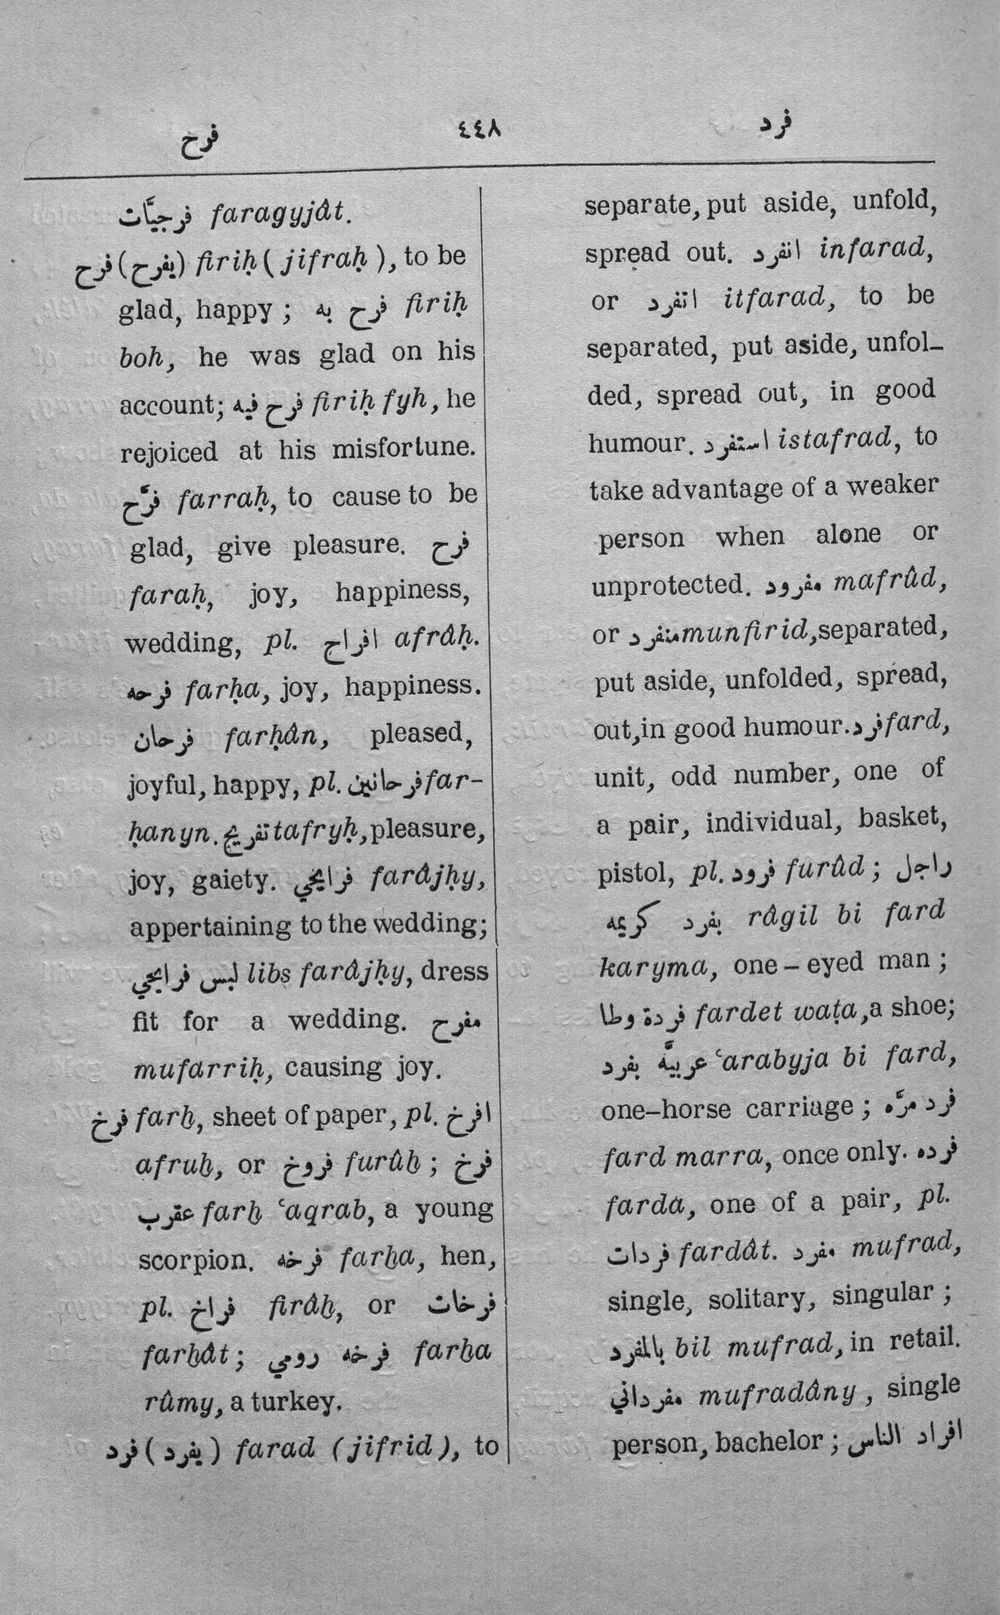 فرخ ٤٤٨ فرد
فرجيَّات faragyjât.
فرح (يفرح) firiḥ ( jifraḥ ), to be
glad, happy ; فرح به firiḥ
boh, he was glad on his
account; فرح فيه firiḥ fyh, he
rejoiced at his misfortune.
فرَّح farraḥ, to cause to be
glad, give pleasure. فرح
faraḥ, joy, happiness,
wedding, pl. افراح afrâḥ.
فرحه farḥa, joy, happiness.
فرحان farḥân, pleased,
joyful, happy, pl. فرحانين far-
ḥanyn. تفريح tafryḥ, pleasure,
joy, gaiety. فرايحي farâjḥy,
appertaining to the wedding;
لبس فرايحي libs farâjḥy, dress
fit for a wedding. مفرح
mufarriḥ, causing joy.
فرخ farḫ, sheet of paper, pl. افرخ
afruḫ, or فروخ furûḫ ; فرخ
عقرب farḫ ʿaqrab, a young
scorpion. فرخه farḫa, hen,
pl. فراخ firâḫ, or فرخات
farḫât ; فرخه رومي farḫa
rûmy, a turkey.
فرد ( يفرد ) farad (jifrid ), to
separate, put aside, unfold,
spread out. انفرد infarad,
or اتفرد itfarad, to be
separated, put aside, unfol-
ded, spread out, in good
humour. استفرد istafrad, to
take advantage of a weaker
person when alone or
unprotected. مفرود mafrûd,
or منفرد munfirid, separated,
put aside, unfolded, spread,
out, in good humour. فرد fard,
unit, odd number, one of
a pair, individual, basket,
pistol, pl. فرود furûd ; راجل
بفرد كريمه râgil bi fard
karyma, one-eyed man ;
فردة وطا fardet waṭa, a shoe;
عربيَّه بفرد ʿarabyja bi fard,
one-horse carriage ; فرد مرَّه
fard marra, once only. فرده
farda, one of a pair, pl.
فردات fardât. مفرد mufrad,
single, solitary, singular ;
بالمفرد bil mufrad, in retail.
مفرداني mufradâny , single
person, bachelor ; افراد الناس